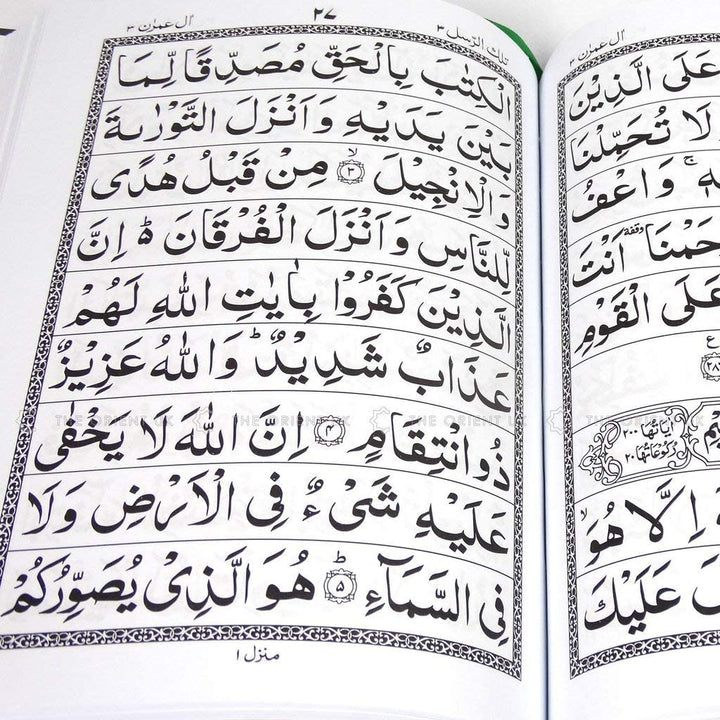 اٰل عمرٰن ٣
عَلَى الَّذِيْنَ
لَا تُحَمِّلْنَا
وَاعْفُ
وقفة اَنْتَ
عَلَى الْقَوْمِ
ع
اٰيَاتُهَا ٢٠٠
رُكُوْعَاتُهَا ٢٠
اِلَّا هُوَ ۙ
عَلَيْكَ
تلك الرسل ٣ ٢٧ اٰل عمرٰن ٣
الْكِتٰبَ بِالْحَقِّ مُصَدِّقًا لِّمَا
بَيْنَ يَدَيْهِ وَاَنْزَلَ التَّوْرٰىةَ
وَالْاِنْجِيْلَ ۙ ﴿٣﴾ مِنْ قَبْلُ هُدًى
لِّلنَّاسِ وَاَنْزَلَ الْفُرْقَانَ ؕ۬ اِنَّ
الَّذِيْنَ كَفَرُوْا بِاٰيٰتِ اللّٰهِ لَهُمْ
عَذَابٌ شَدِيْدٌ ؕ وَاللّٰهُ عَزِيْزٌ
ذُو انْتِقَامٍ ﴿٤﴾ اِنَّ اللّٰهَ لَا يَخْفٰى
عَلَيْهِ شَىْءٌ فِى الْاَرْضِ وَلَا
فِى السَّمَآءِ ؕ ﴿٥﴾ هُوَ الَّذِىْ يُصَوِّرُكُمْ
منزل ١
THE ORIENT UK THE ORIENT UK THE ORIENT UK THE ORIENT UK